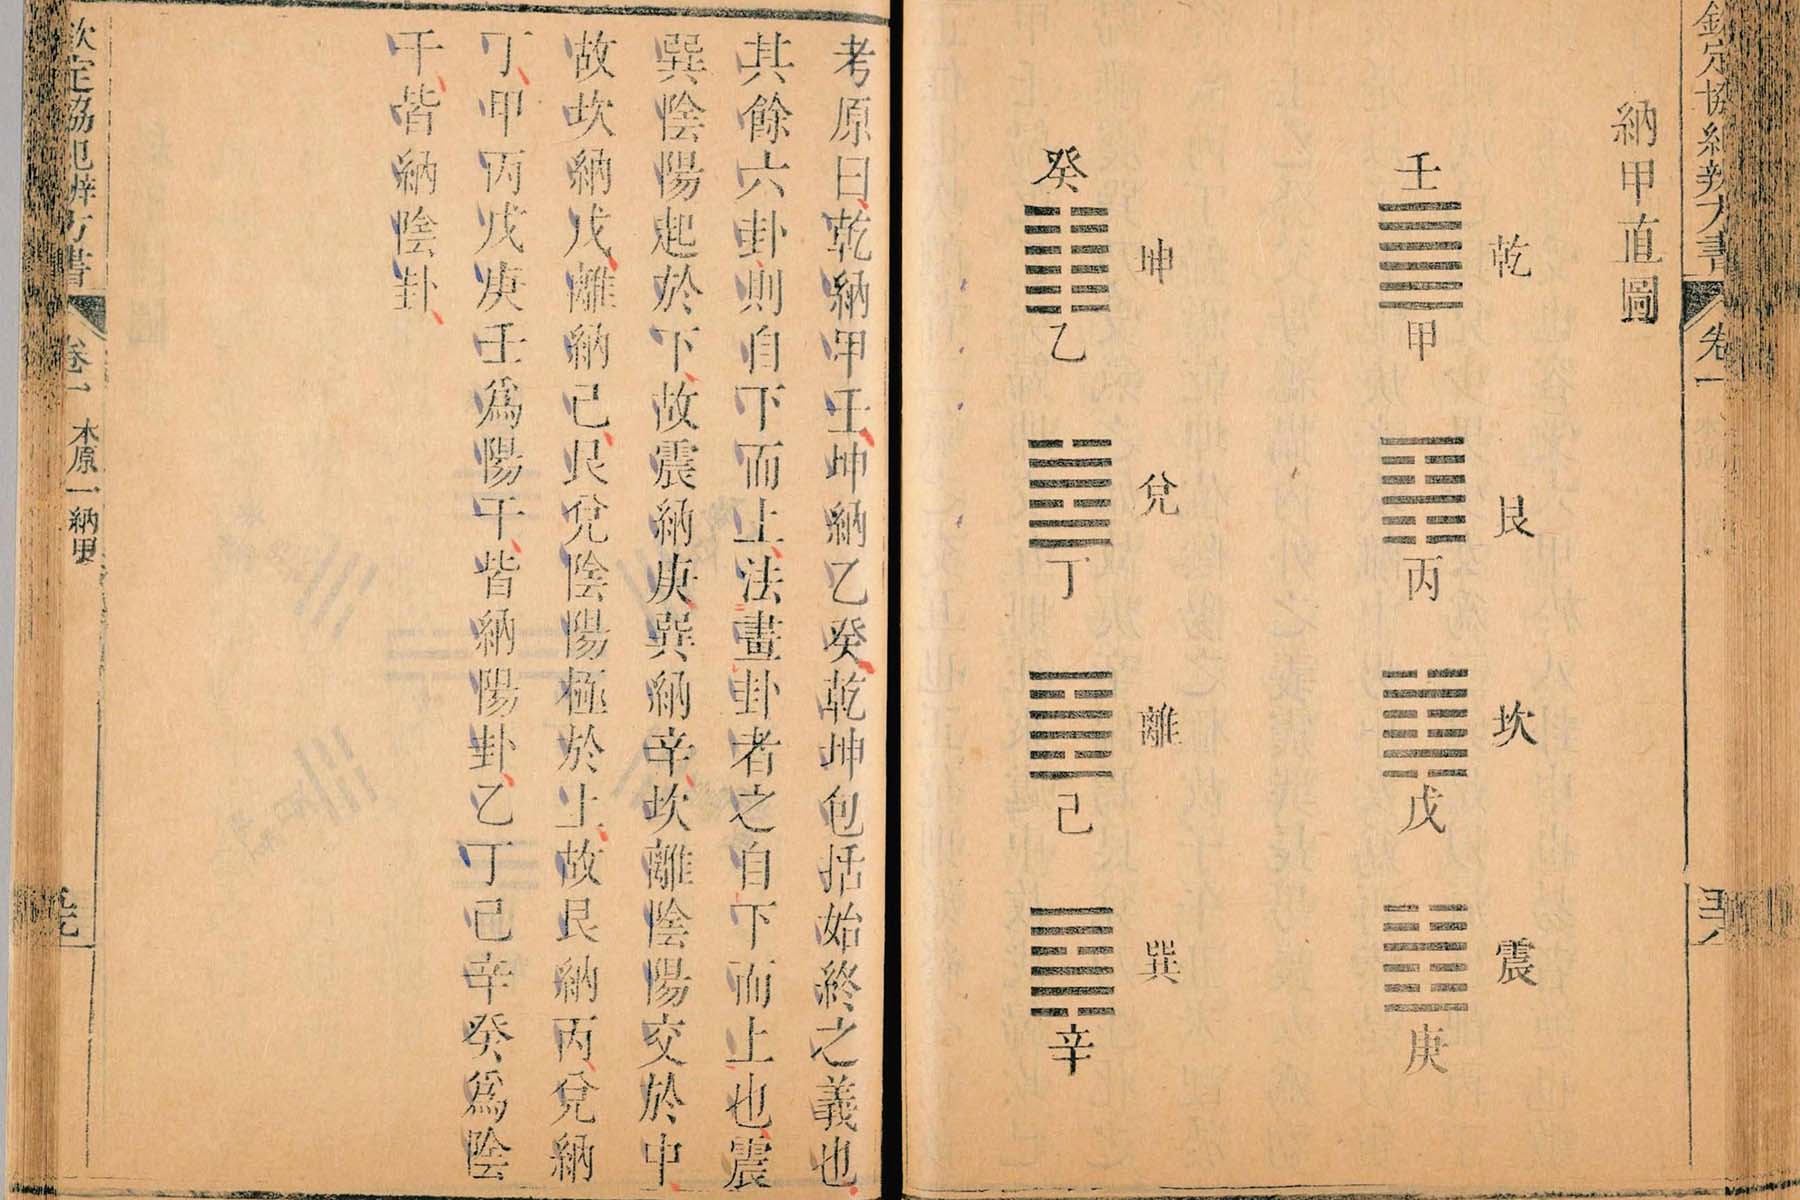 納甲直圖
乾
壬
甲
艮
丙
坎
戊
震
庚
坤
癸
乙
兌
丁
離
己
巽
辛
考原曰乾納甲壬坤納乙癸乾坤包括始終之義也
其餘六卦則自下而上法畫卦者之自下而上也震
巽陰陽起於下故震納庚巽納辛坎離陰陽交於中
故坎納戊離納己艮兌陰陽極於上故艮納丙兌納
丁甲丙戊庚壬為陽干皆納陽卦乙丁己辛癸為陰
干皆納陰卦
欽定協紀辨方書
卷一
本原一納甲